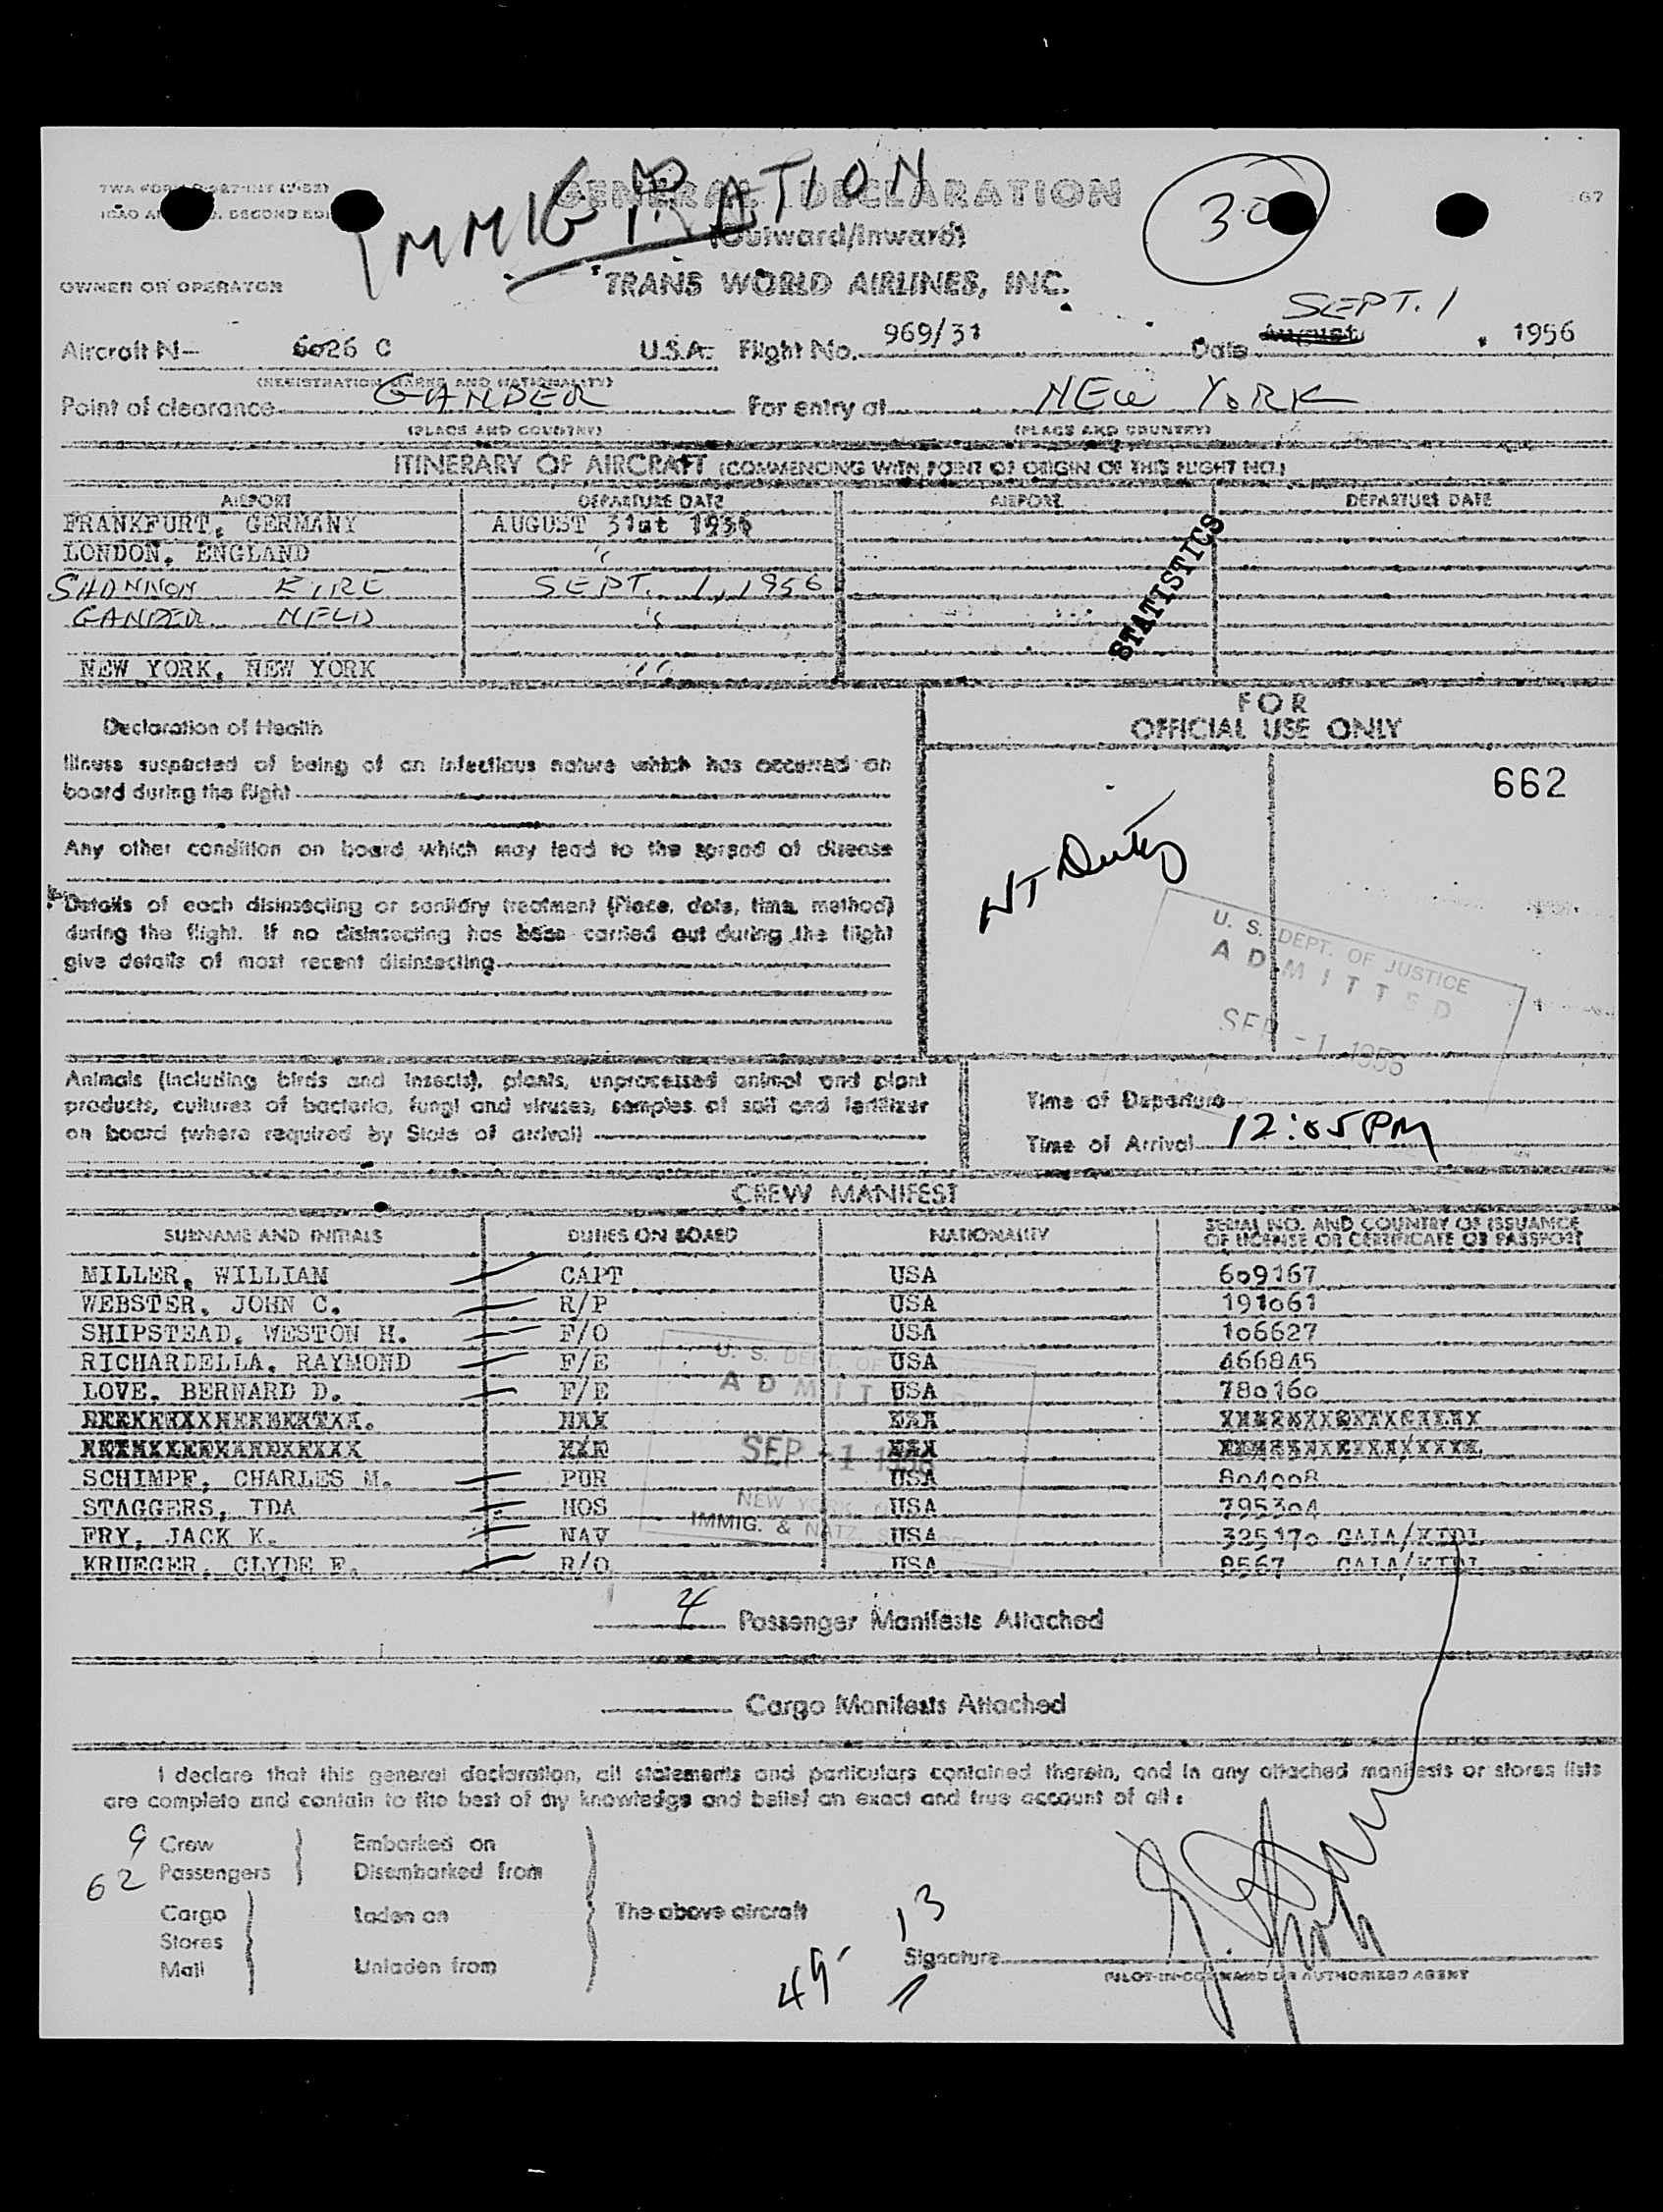 IMMIGRATION
TWA FORM
GENERAL DECLARATION
30
67
(Outward/Inward)
OWNER OR OPERATOR
TRANS WORLD AIRLINES, INC.
SEPT. 1
Aircraft N- 6026 C U.S.A. Flight No. 969/31 Date August , 1956
(REGISTRATION MARKS AND NATIONALITY)
Point of clearance GANDER For entry at NEW YORK
(PLACE AND COUNTRY) (PLACE AND COUNTRY)
ITINERARY OF AIRCRAFT (COMMENCING WITH POINT OF ORIGIN OF THIS FLIGHT NO.)
AIRPORT DEPARTURE DATE AIRPORT DEPARTURE DATE
FRANKFURT, GERMANY AUGUST 31st 1956
LONDON, ENGLAND "
SHANNON EIRE SEPT. 1, 1956
GANDER NFLD "
NEW YORK, NEW YORK "
STATISTICS
FOR
OFFICIAL USE ONLY
662
Declaration of Health
Illness suspected of being of an infectious nature which has occurred on
board during the flight
Any other condition on board which may lead to the spread of disease
Details of each disinsecting or sanitary treatment (Place, date, time, method)
during the flight. If no disinsecting has been carried out during the flight
give details of most recent disinsecting
NT Duty
U. S. DEPT. OF JUSTICE
ADMITTED
SEP -1 1956
Animals (including birds and insects), plants, unprocessed animal and plant
products, cultures of bacteria, fungi and viruses, samples of soil and fertilizer
on board (where required by State of arrival)
Time of Departure
Time of Arrival 12:05 PM
CREW MANIFEST
SURNAME AND INITIALS DUTIES ON BOARD NATIONALITY SERIAL NO. AND COUNTRY OF ISSUANCE
OF LICENSE OR CERTIFICATE OR PASSPORT
MILLER, WILLIAM CAPT USA 609167
WEBSTER, JOHN C. R/P USA 191061
SHIPSTEAD, WESTON H. F/O USA 106627
RICHARDELLA, RAYMOND F/E USA 466845
LOVE, BERNARD D. F/E USA 780160
SCHIMPF, CHARLES M. PUR USA 804008
STAGGERS, IDA HOS USA 795304
FRY, JACK K. NAV USA 325170 GAIA/KIDL
KRUEGER, CLYDE E. R/O USA 8567 GAIA/KIDL
U. S. DEPT. OF
ADMITTED
SEP -1 1956
NEW YORK
IMMIG. & NATZ. SERVICE
4 Passenger Manifests Attached
Cargo Manifests Attached
I declare that this general declaration, all statements and particulars contained therein, and in any attached manifests or stores lists
are complete and contain to the best of my knowledge and belief an exact and true account of all :
9 Crew Embarked on
62 Passengers Disembarked from
Cargo Laden on The above aircraft
Stores
Mail Unladen from
13
49
Signature
PILOT-IN-COMMAND OR AUTHORIZED AGENT